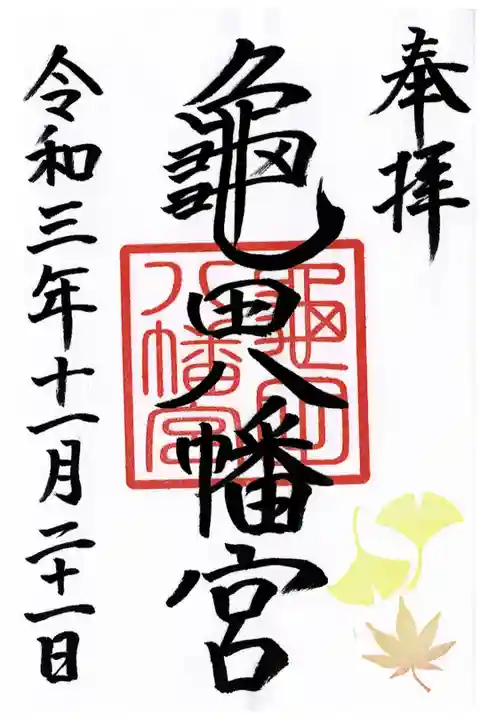 奉拝
龜田八幡宮
龜田八幡宮
令和三年十一月二十一日